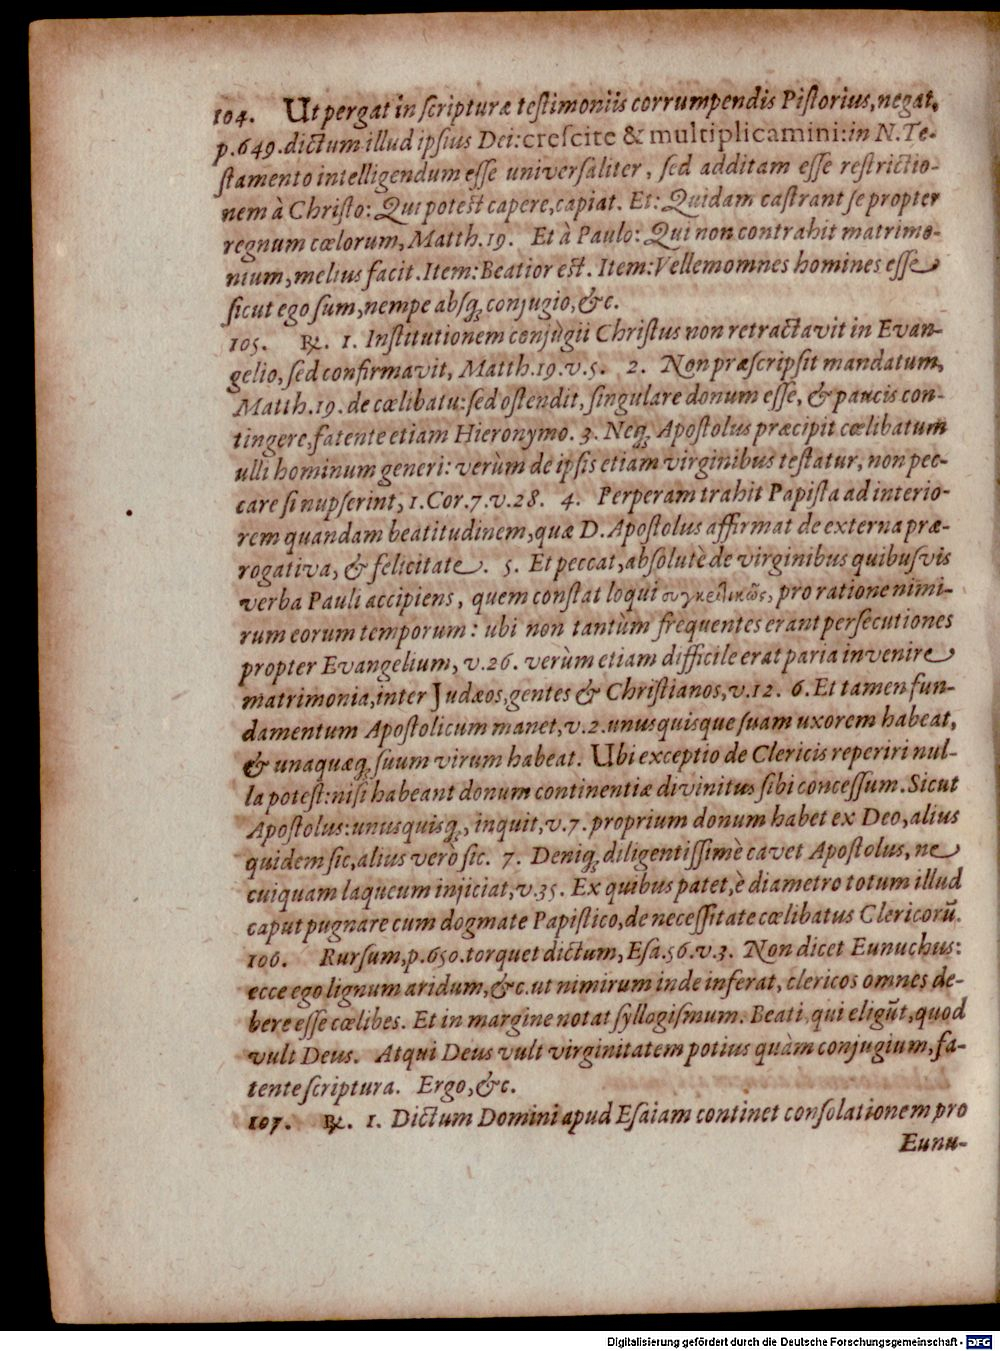 104. Ut pergat in ſcripturæ teſtimoniis corrumpendis Piſtorius, negat,
p. 649. dictum illud ipſius Dei: creſcite & multiplicamini: in N. Te-
ſtamento intelligendum eſſe univerſaliter, ſed additam eſſe reſtrictio-
nem à Chriſto: Qui poteſt capere, capiat. Et: Quidam caſtrant ſe propter
regnum cœlorum, Matth. 19. Et à Paulo: Qui non contrahit matrimo-
nium, melius facit. Item: Beatior eſt. Item: Vellem omnes homines eſſe
ſicut ego ſum, nempe abſq; conjugio, &c.
105. ℞. 1. Inſtitutionem conjùgii Chriſtus non retractavit in Evan-
gelio, ſed confirmavit, Matth. 19. v. 5. 2. Non præſcripſit mandatum,
Matth. 19. de cœlibatu: ſed oſtendit, ſingulare donum eſſe, & paucis con-
tingere, fatente etiam Hieronymo. 3. Neq; Apoſtolus præcipit cœlibatum
ulli hominum generi: verùm de ipſis etiam virginibus teſtatur, non pec-
care ſi nupſerint, 1. Cor. 7. v. 28. 4. Perperam trahit Papiſta ad interio-
rem quandam beatitudinem, quæ D. Apoſtolus affirmat de externa præ-
rogativa, & felicitate. 5. Et peccat, abſolutè de virginibus quibuſvis
verba Pauli accipiens, quem conſtat loqui pro ratione nimi-
rum eorum temporum: ubi non tantùm frequentes erant perſecutiones
propter Evangelium, v. 26. verùm etiam difficile erat paria invenire
matrimonia, inter Judæos, gentes & Chriſtianos, v. 12. 6. Et tamen fun-
damentum Apoſtolicum manet, v. 2. unusquisque ſuam uxorem habeat,
& unaquæq; ſuum virum habeat. Ubi exceptio de Clericis reperiri nul-
la poteſt: niſi habeant donum continentiæ divinitus ſibi conceſſum. Sicut
Apoſtolus: unusquisq;, inquit, v. 7. proprium donum habet ex Deo, alius
quidem ſic, alius verò ſic. 7. Deniq; diligentiſſimè cavet Apoſtolus, ne
cuiquam laqueum injiciat, v. 35. Ex quibus patet, è diametro totum illud
caput pugnare cum dogmate Papiſtico, de neceſſitate cœlibatus Clericorū.
106. Rurſum, p. 650. torquet dictum, Eſa. 56. v. 3. Non dicet Eunuchus:
ecce ego lignum aridum, &c. ut nimirum inde inferat, clericos omnes de-
bere eſſe cœlibes. Et in margine notat ſyllogiſmum. Beati, qui eligūt, quod
vult Deus. Atqui Deus vult virginitatem potius quàm conjugium, fa-
tente ſcriptura. Ergo, &c.
107. ℞. 1. Dictum Domini apud Eſaiam continet conſolationem pro
Eunu-
Digitalisierung gefördert durch die Deutsche Forschungsgemeinschaft - DFG